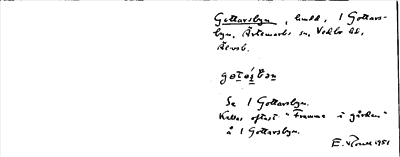 Gottarsbyn, hmdd, i Gottars-
byn, Ärtemarks sn, Vedbo hd,
Älvsb.
Se 1 Gottarsbyn.
Kallas oftast "Framme i gården"
å 1 Gottarsbyn.
E. 1951